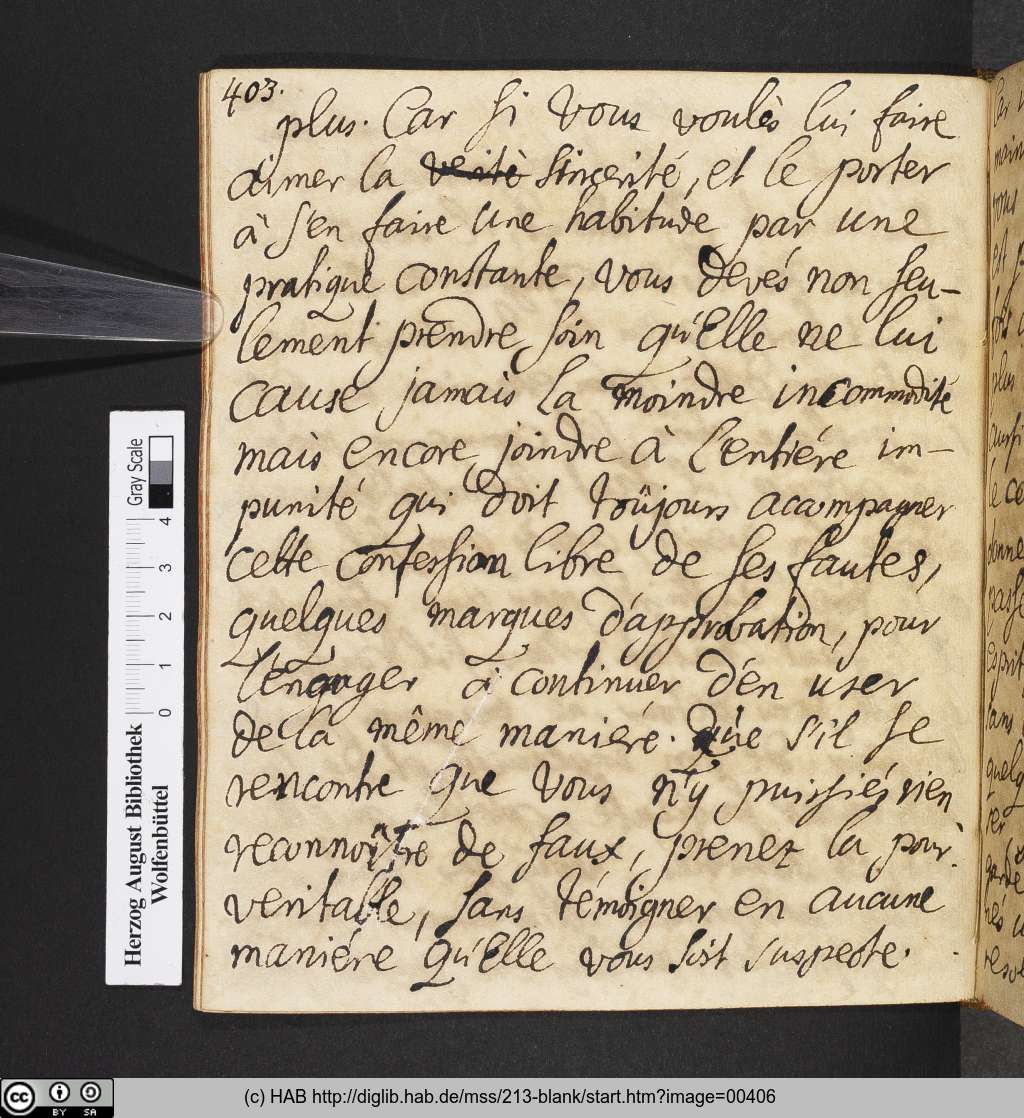 403.
plus. Car si vous voulés lui faire
aimer la verité sincerité, et le porter
à s'en faire une habitude par une
pratique constante, vous devés non seu-
lement prendre soin qu'Elle ne lui
cause jamais la moindre incommodité
mais encore joindre à l'entiére im-
punité qui doit toûjours accompagner
cette confession libre de ses fautes,
quelques marques d'approbation, pour
l'engager à continuer d'en user
de la même maniére. Que s'il se
rencontre que vous n'y puissiés rien
reconnoître de faux, prenez la pour
veritable, sans témoigner en aucune
maniére qu'Elle vous soit suspecte.
Herzog August Bibliothek
Wolfenbüttel
Gray Scale
0 1 2 3 4
cc BY SA
(c) HAB http://diglib.hab.de/mss/213-blank/start.htm?image=00406